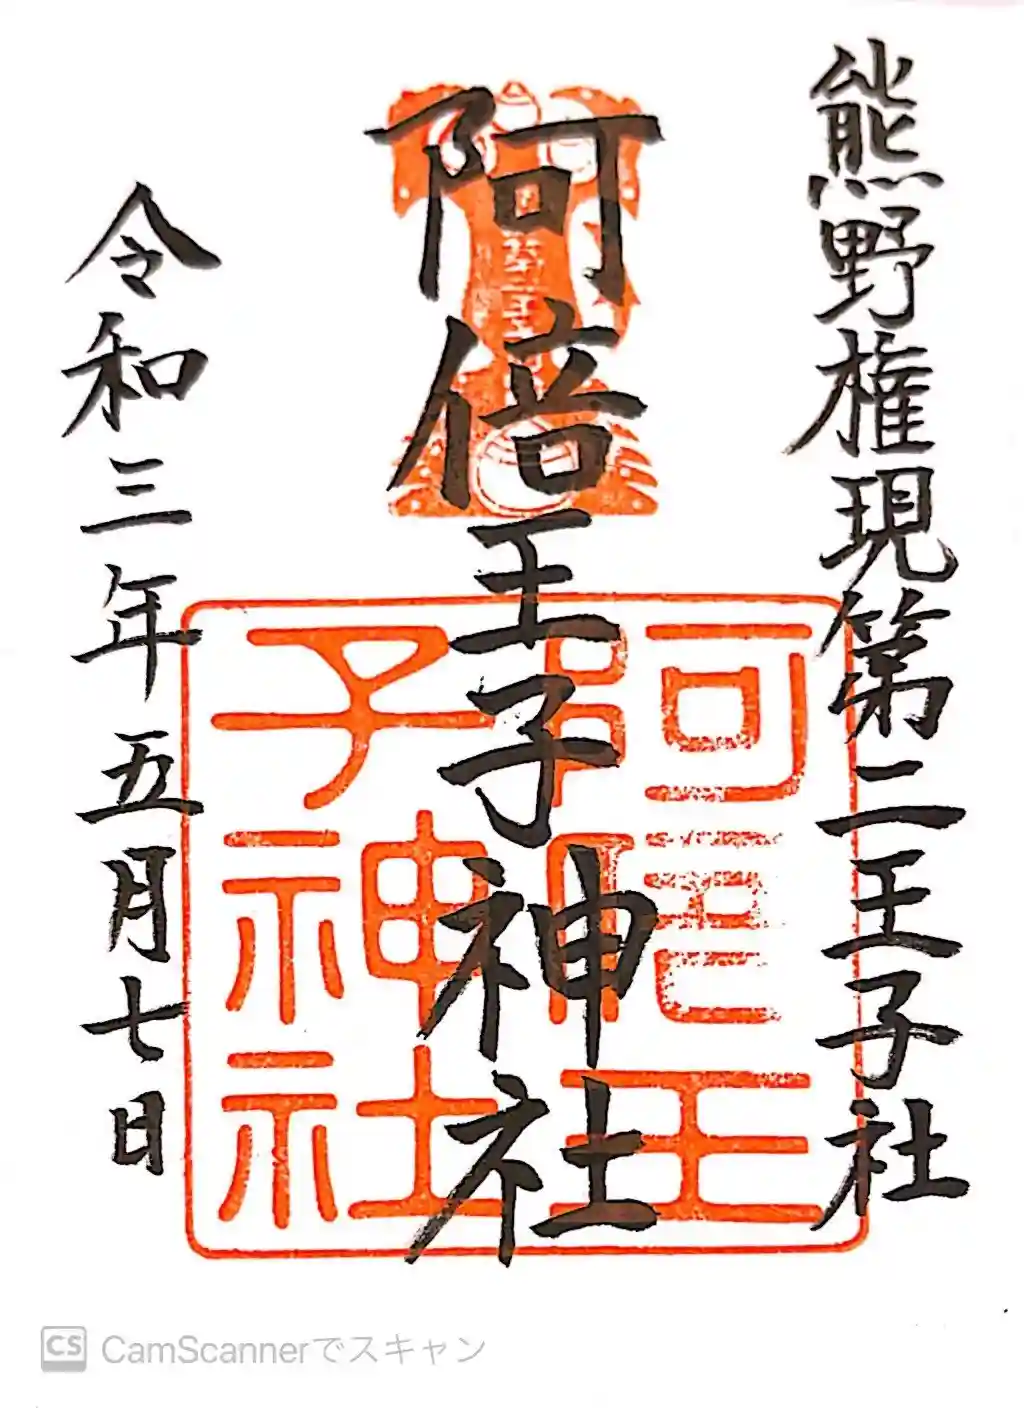 熊野権現第二王子社
阿倍王子神社
令和三年五月七日
阿
王
子神社
CS CamScannerでスキャン